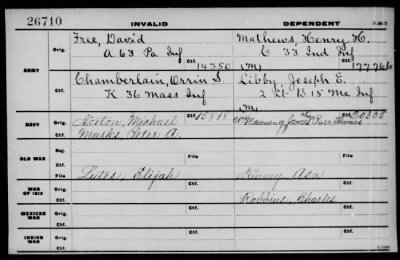 26710 INVALID DEPENDENT
ARMY
Orig.
Free, David
A 63 Pa Inf
Ctf. 14350
Mathews, Henry H.
C 33 Ind Inf
(M)
Ctf.
Chamberlain, Orrin S
K 36 Mass Inf
Libby, Joseph E.
2 Lt. B 15 Me Inf
(M)
NAVY
Orig. Norton, Michael Ctf. 13818
Ctf. Marks, Peter A.
Manning, James Thomas Ctf. 20305
OLD WAR
Inj.
Ctf. File File
WAR OF 1812
Orig. Lutes, Elijah
Ctf.
Kinney, Asa
Robbins, Charles
MEXICAN WAR
Orig. Ctf. Ctf.
Ctf.
INDIAN WAR
Orig. Ctf. Ctf.
Ctf.